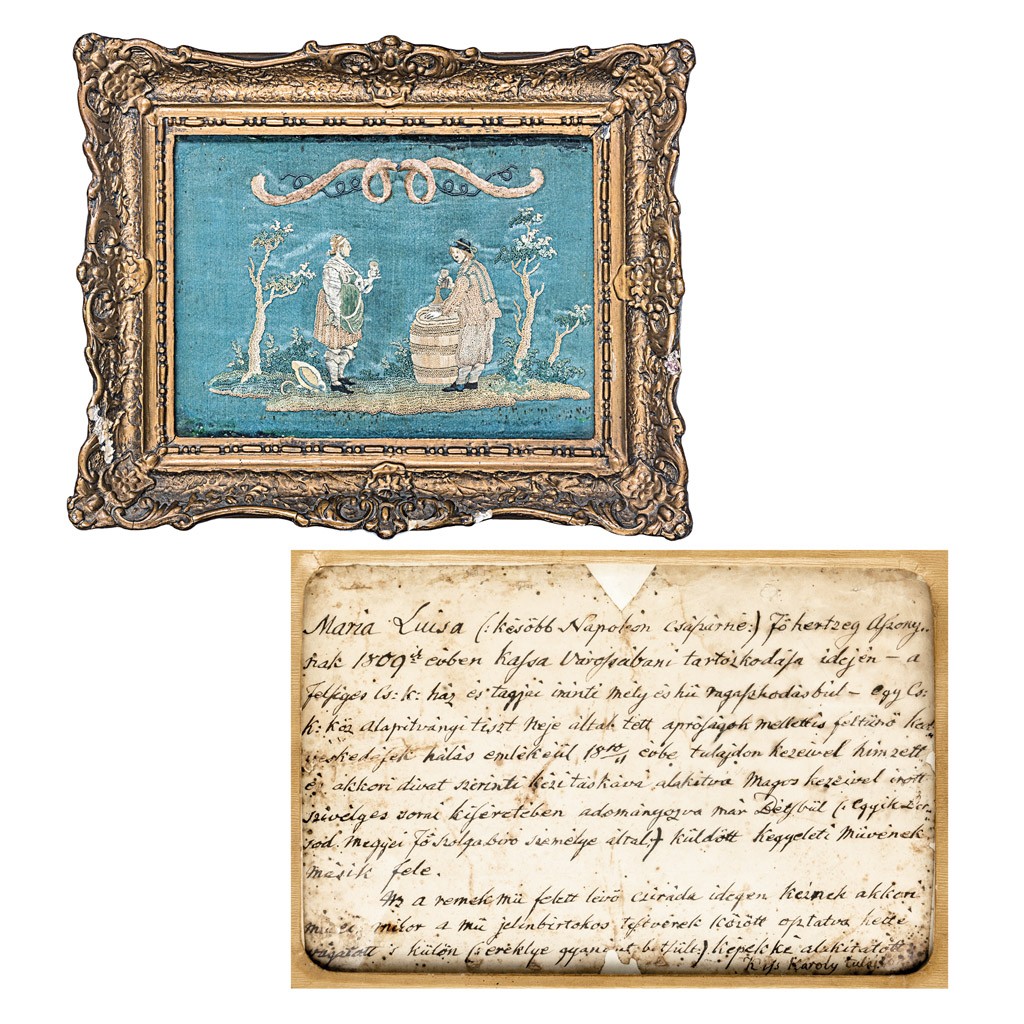 Maria Luisa (: később Napoleon császárné:) Főhertzeg Aszony..
nak 1809ik évben Kassa Várossábani tartózkodása idején – a
Felséges Cs: k: ház és tagjai iránti mely és hű ragaszkodásbúl – egy Cs:
k: köz alapitványi tiszt Neje által tett apróságok mellettis feltünő ked„
veskedések hálás emlékeül 1810/11 évbe tulajdon kezeivel himzett
és akkori divat szerinti kézi táskává alakitva Magos kezeivel irott
szivélyes sorai kiséretében adományozva már Bétsbül (: egyik
sod. Megyei Fő szolgabiró személye által:) küldött Kegyeleti Müvének
másik fele.
Az a remek mü felett lévő cziráda idegen kéznek akkori
mikor a mü jelinbirtokos testvérek között osztatva ketté
vágatott s külön (: ereklye gyanánt betsült:) képekké alakitatott
Kiss Károly tulaj.